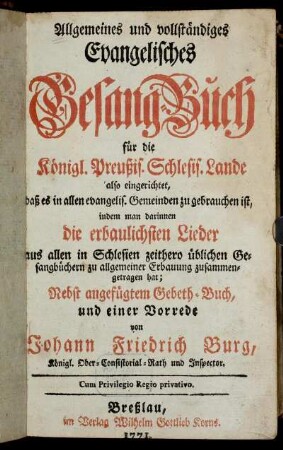 Allgemeines und vollständiges
Evangelisches
Gesang-Buch
für die
Königl. Preußis. Schlesis. Lande
also eingerichtet,
daß es in allen evangelis. Gemeinden zu gebrauchen ist,
indem man darinnen
die erbaulichsten Lieder
aus allen in Schlesien zeithero üblichen Ge-
sangbüchern zu allgemeiner Erbauung zusammen-
getragen hat;
Nebst angefügtem Gebeth-Buch,
und einer Vorrede
von
Johann Friedrich Burg,
Königl. Ober-Consistorial-Rath und Inspector.
Cum Privilegio Regio privativo.
Breßlau,
im Verlag Wilhelm Gottlieb Korns.
1771.